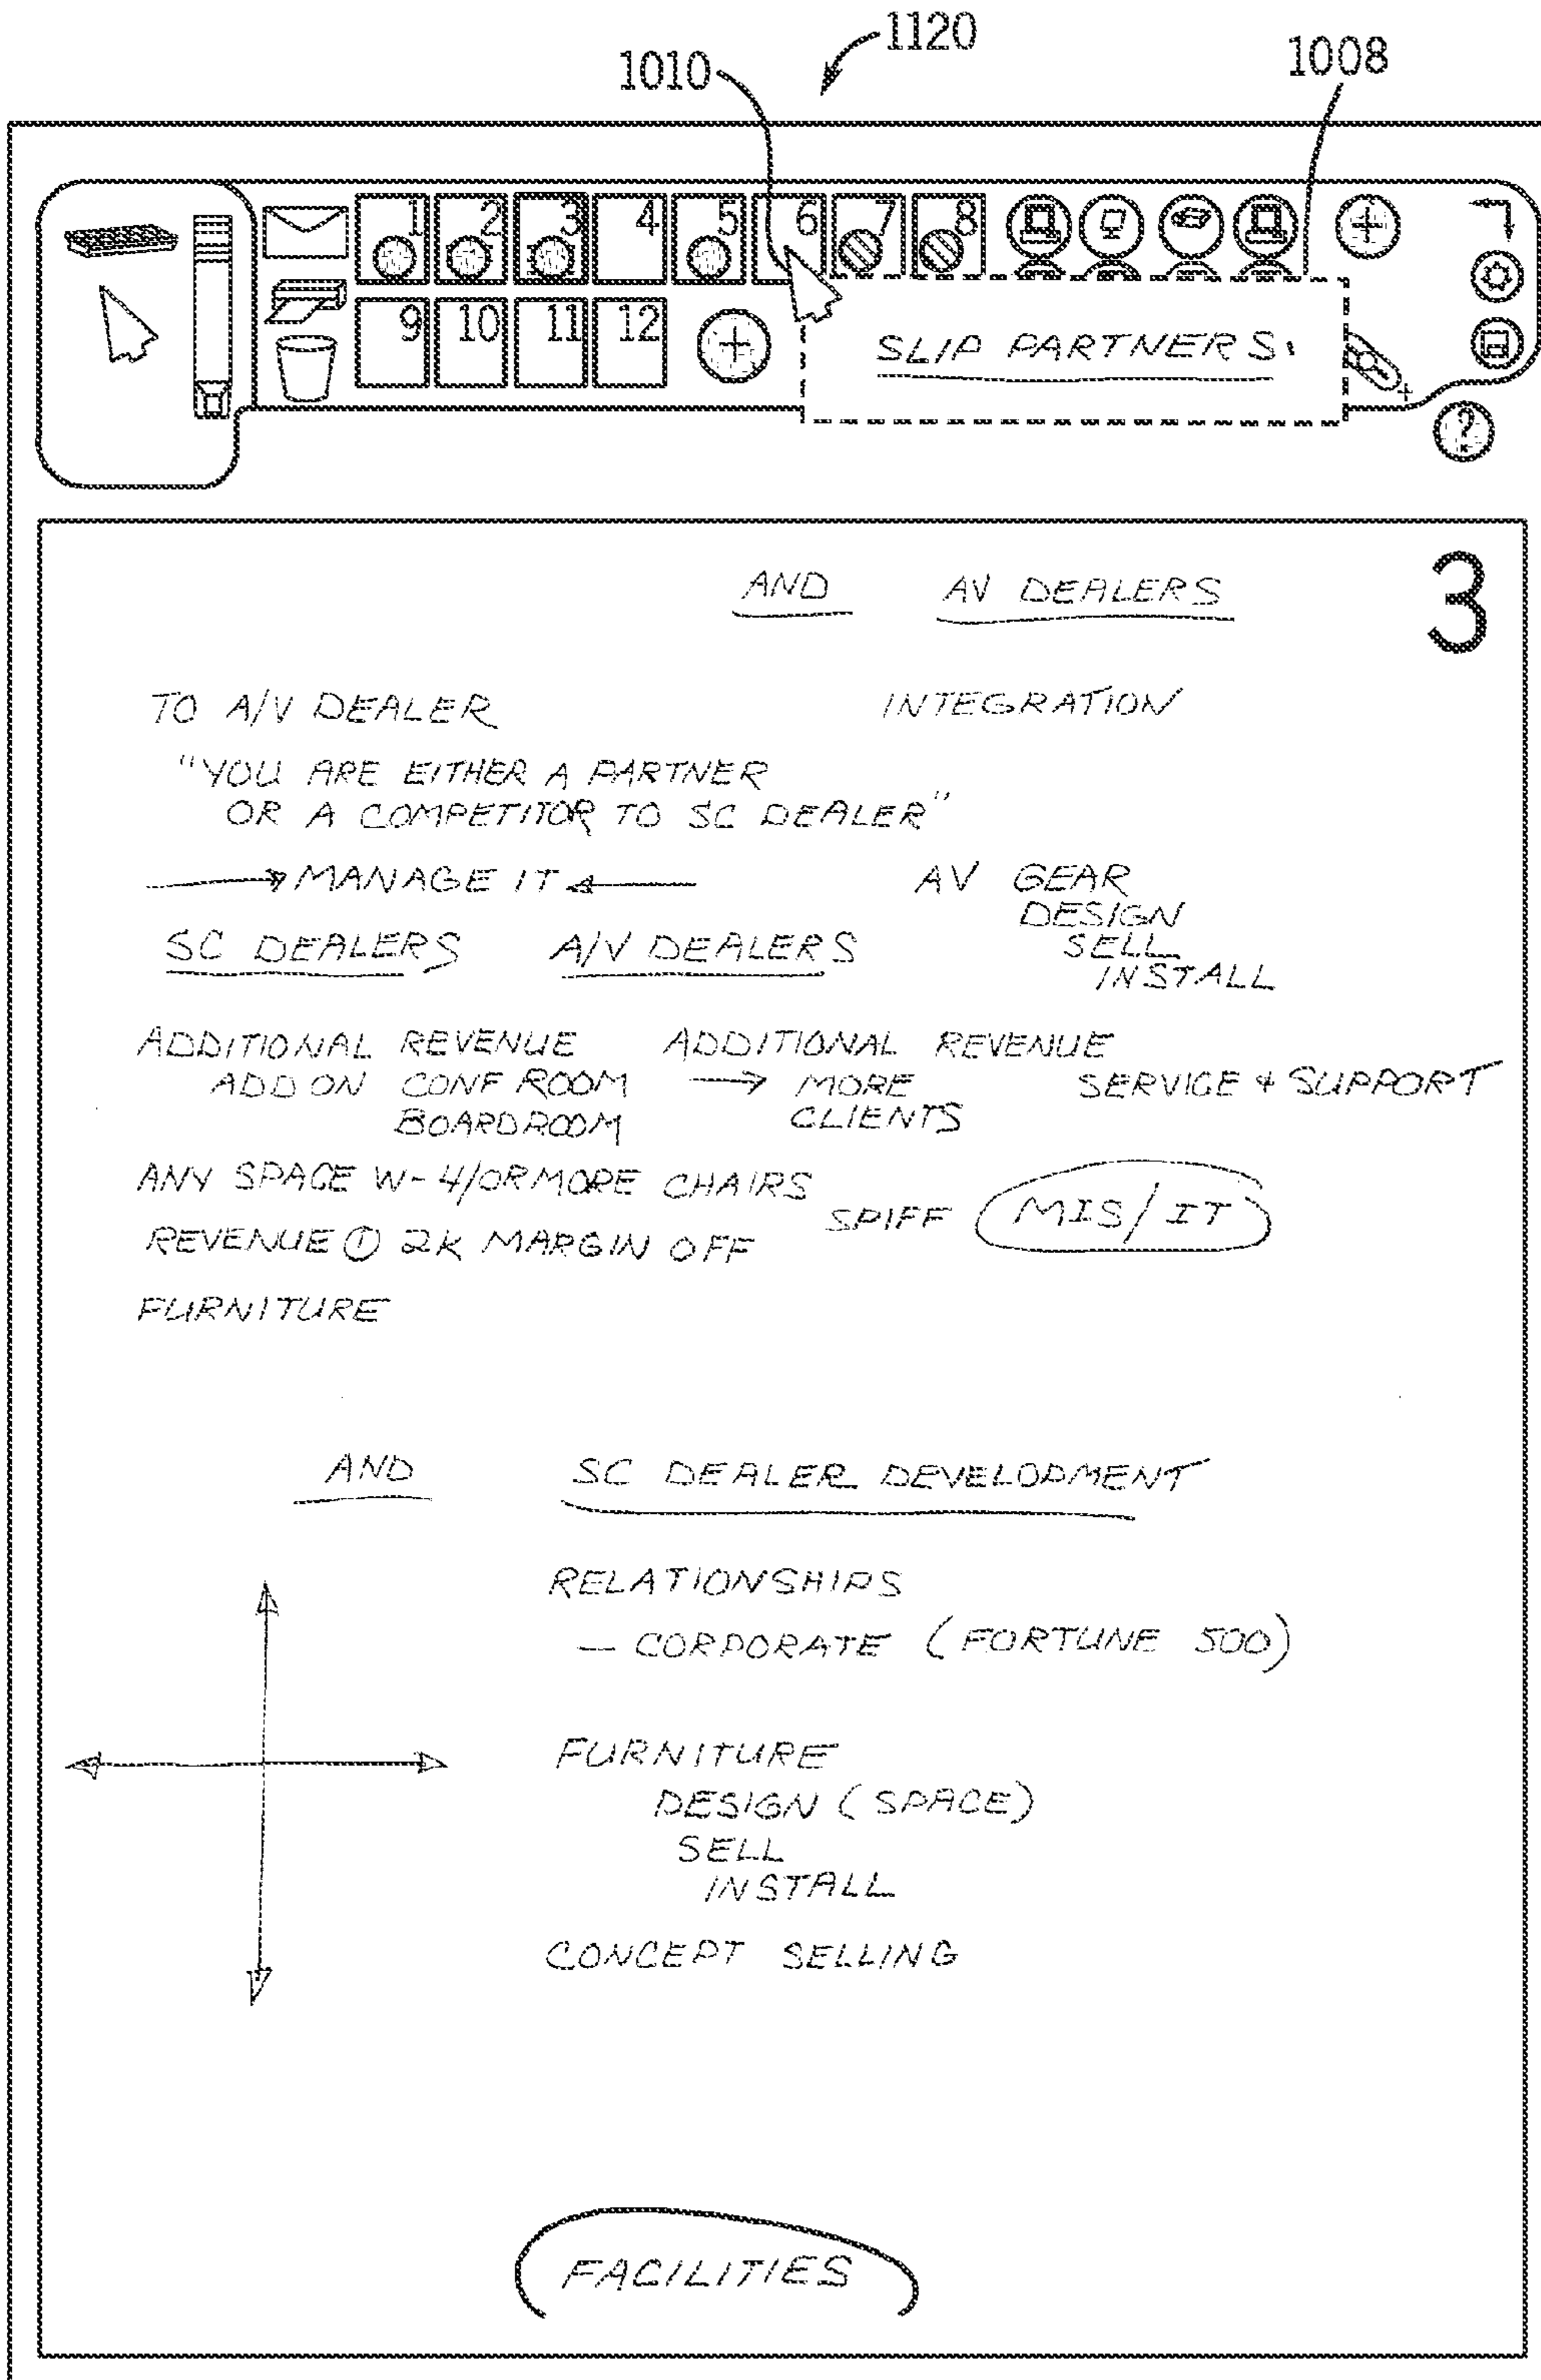 1120
1010
1008
1 2 3 4 5 6 7 8
9 10 11 12
SLIP PARTNERS
?
3
AND AV DEALERS
TO A/V DEALER INTEGRATION
"YOU ARE EITHER A PARTNER
OR A COMPETITOR TO SC DEALER"
MANAGE IT AV GEAR
DESIGN
SC DEALERS A/V DEALERS SELL
INSTALL
ADDITIONAL REVENUE ADDITIONAL REVENUE
ADD ON CONF ROOM → MORE SERVICE & SUPPORT
BOARDROOM CLIENTS
ANY SPACE W-4/OR MORE CHAIRS
SPIFF MIS/IT
REVENUE ① 2K MARGIN OFF
FURNITURE
AND SC DEALER DEVELOPMENT
RELATIONSHIPS
— CORPORATE (FORTUNE 500)
FURNITURE
DESIGN (SPACE)
SELL
INSTALL
CONCEPT SELLING
FACILITIES